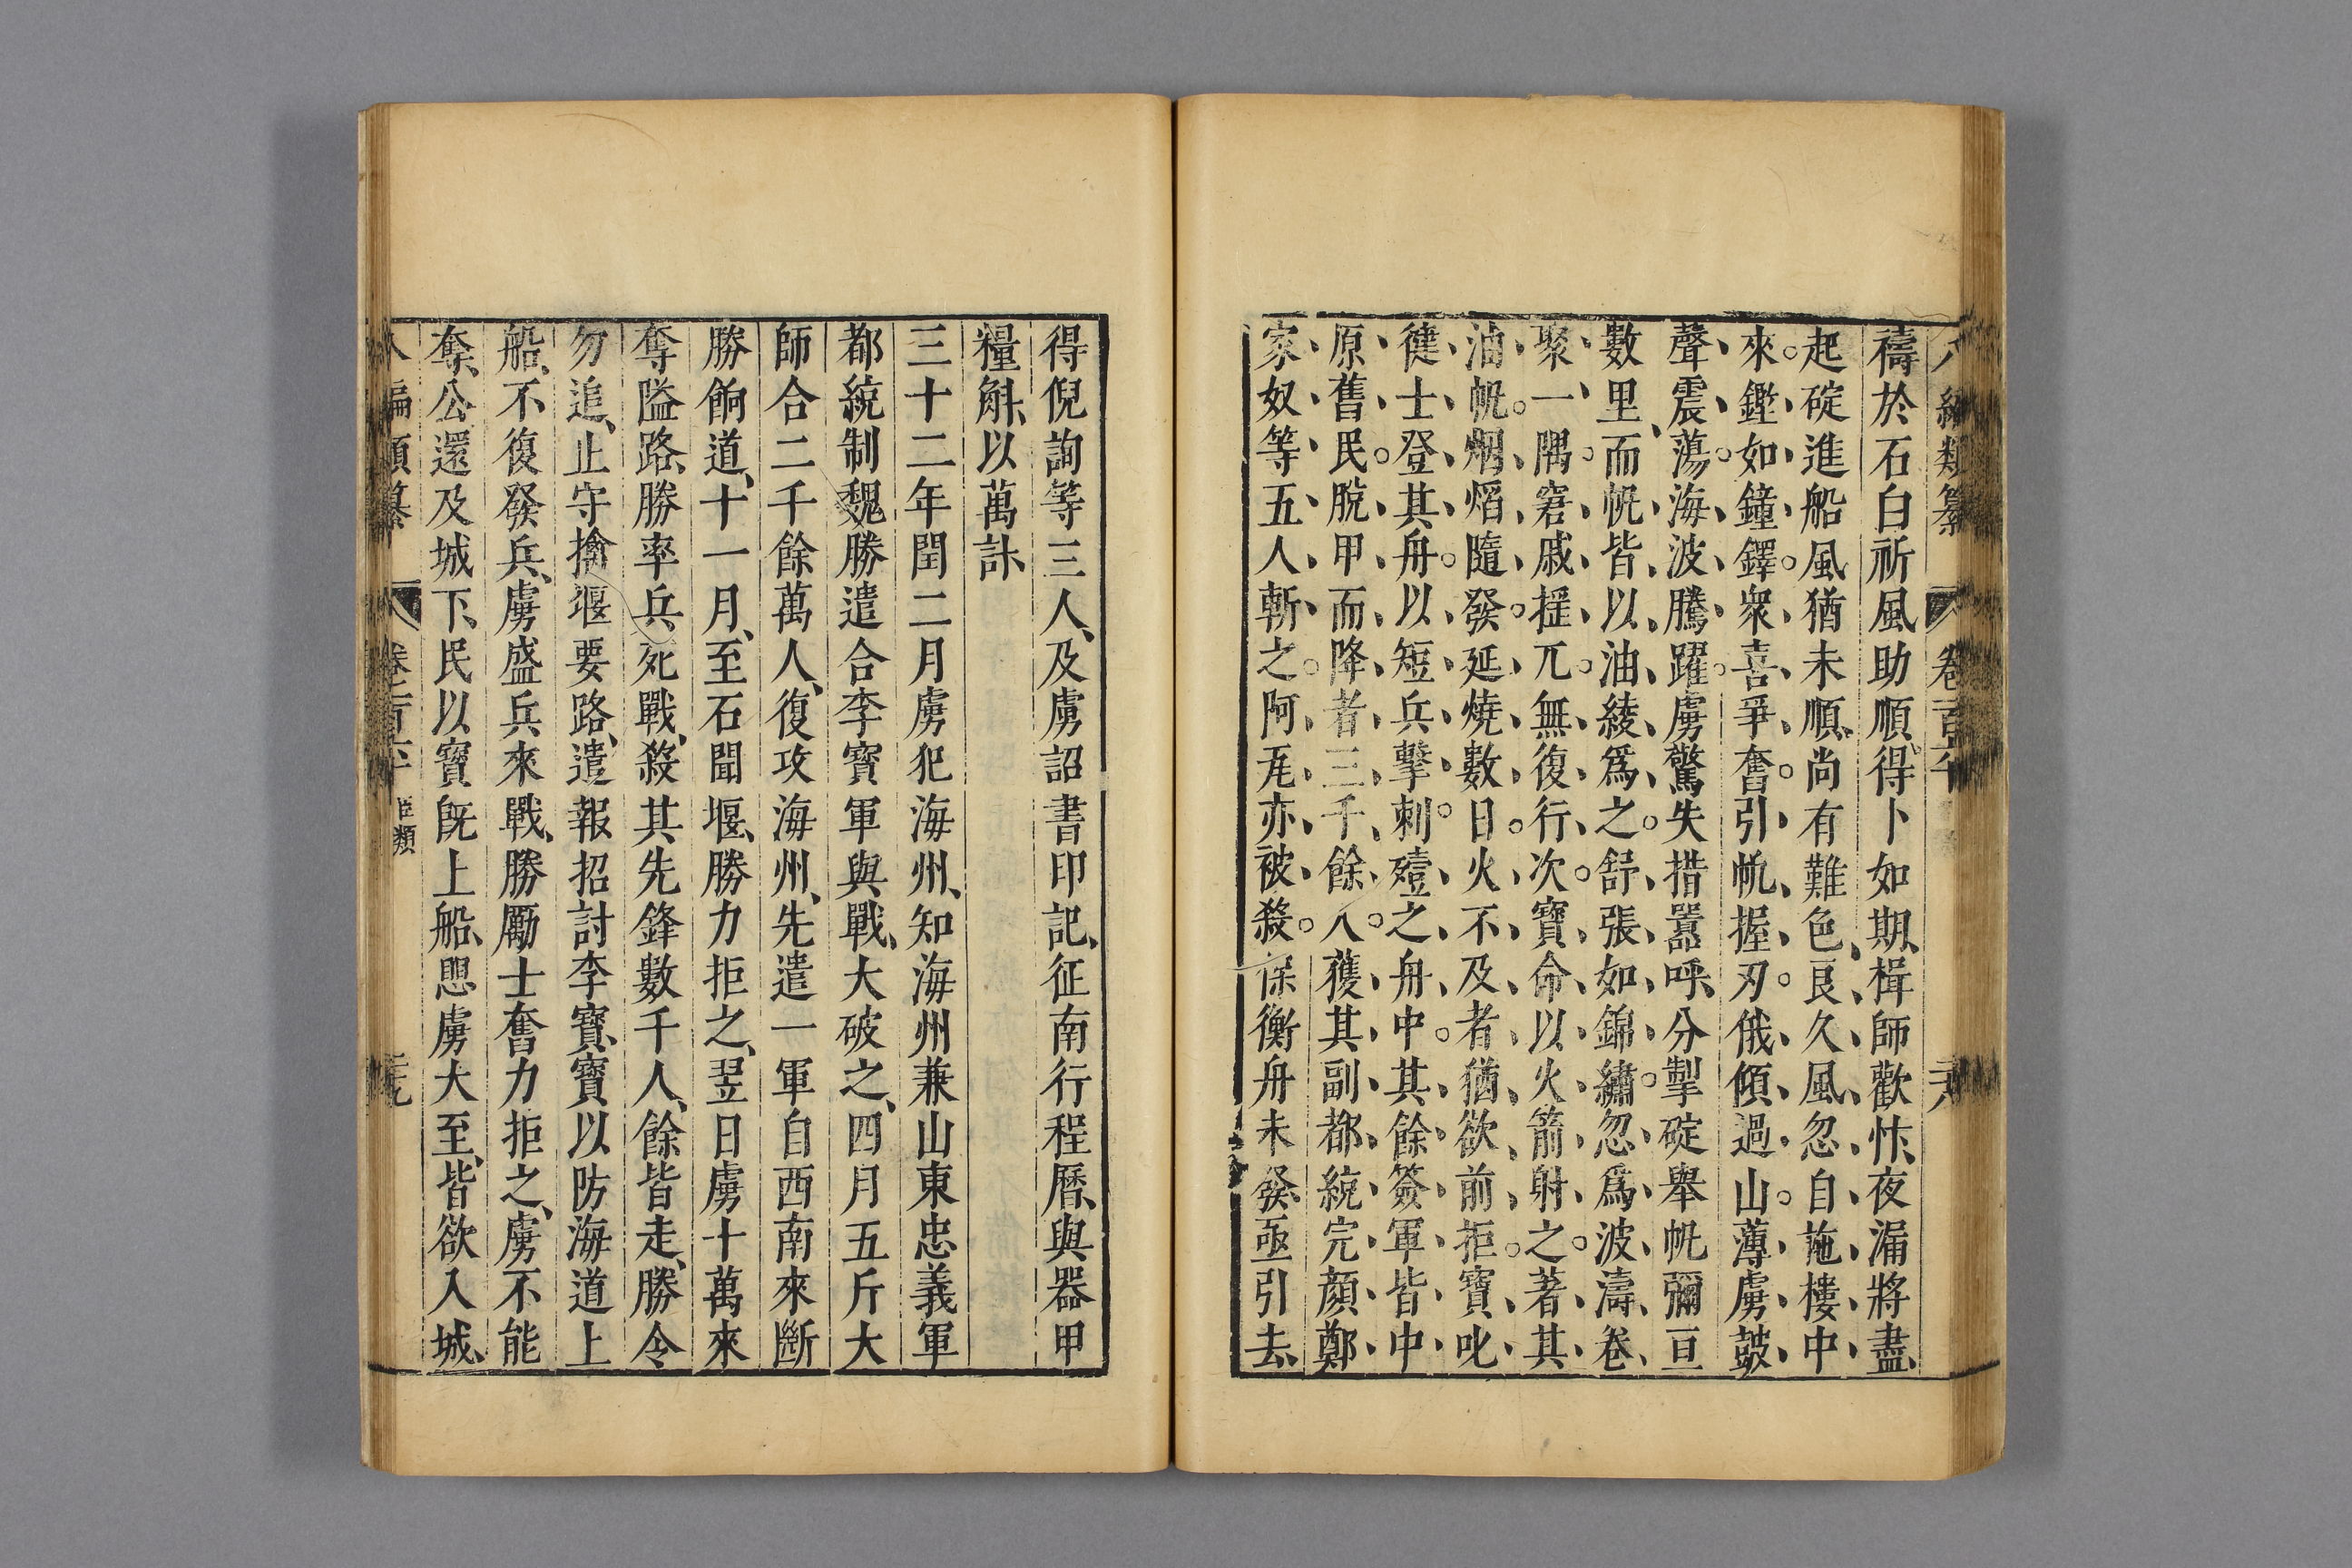 八編類纂 卷百六十 六八
禱於石臼祈風助順得卜如期楫師歡忭夜漏將盡
起碇進船風猶未順尚有難色良久風忽自施樓中
來鏗如鐘鐸衆喜爭奮引帆握刃俄傾過山薄虜鼓
聲震蕩海波騰躍虜驚失措嚣呼分掣碇舉帆彌亘
數里而帆皆以油綾爲之舒張如錦繡忽爲波濤卷
聚一隅窘戚揺兀無復行次寶命以火箭射之著其
油帆烟熖隨發延燒數日火不及者猶欲前拒寶叱
徤士登其舟以短兵擊刺殪之舟中其餘簽軍皆中
原舊民脫甲而降者三千餘人獲其副都統完顏鄭
家奴等五人斬之阿尨亦被殺保衡舟未發亟引去
得倪詢等三人及虜詔書印記征南行程曆與器甲
糧斛以萬計
三十二年閏二月虜犯海州知海州兼山東忠義軍
都統制魏勝遣合李寶軍與戰大破之四月五斤大
師合二千餘萬人復攻海州先遣一軍自西南來斷
勝餉道十一月至石闥堰勝力拒之翌日虜十萬來
奪隘路勝率兵死戰殺其先鋒數千人餘皆走勝令
勿追止守擒堰要路遣報招討李寶寶以防海道上
船不復發兵虜盛兵來戰勝勵士奮力拒之虜不能
奪公還及城下民以寶旣上船恩虜大至皆欲入城
八編類纂 卷百六十 類